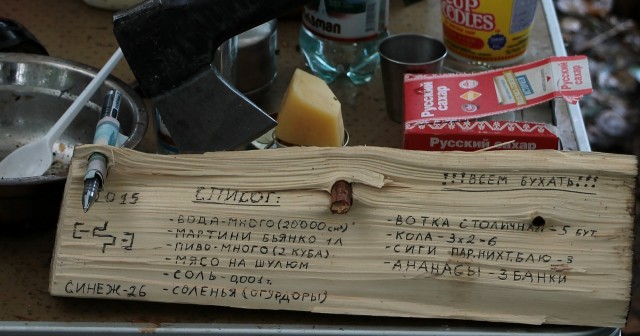 aman
CUP
NOODLES
Русский
сахар
Русский
сахар
Русский сахар
2015
СПИСОГ:
!!!ВСЕМ БУХАТЬ!!!
- ВОДА-МНОГО (20000 см³)
- МАРТИНИ БЬЯНКО 1Л
- ПИВО-МНОГО (2 КУБА)
- МЯСО НА ШУЛЮМ
- СОЛЬ-0,001г.
- СОЛЕНЬЯ (ОГУРДОРЫ)
- ВОТКА СТОЛИЧНАЯ-5 БУТ.
- КОЛА - 3×2=6
- СИГИ ПАР.НИХТ.БЛЮ -3
- АНАНАСЫ - 3 БАНКИ
СИНЕЖ-26